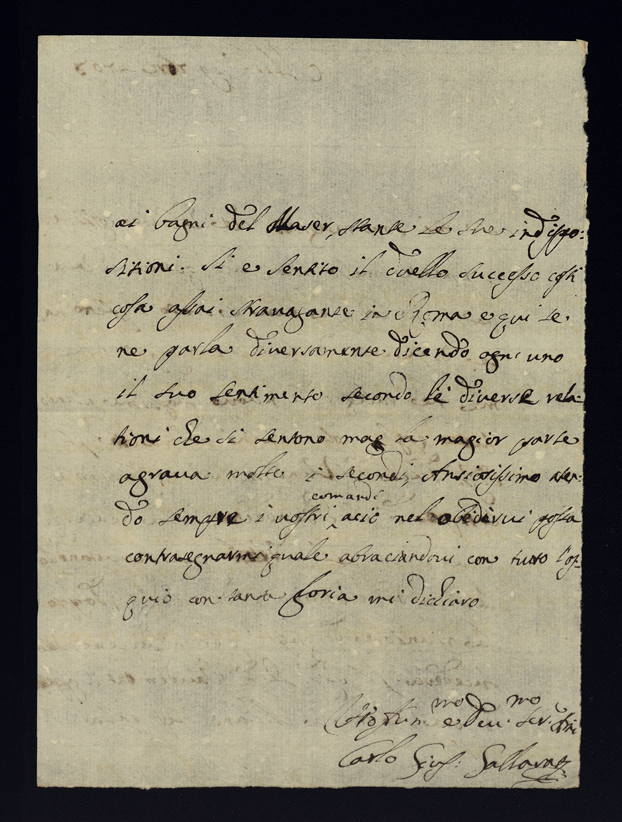 ai bagni del Maser, stante le sue indispo:
sitioni. Si e sentito il duello successo così
cosa assai stravagante in Roma e qui se
ne parla diversamente dicendo ogni uno
il suo sentimento secondo le diverse rela-
tioni che si sentono mae la magior parte
agrava molto i secondi, Ansiosissimo aten-
do sempre i vostri comandi aciò nel obedirvi possa
contrasegnarmi quale abraciandovi con tutto l'os-
quio con tanta
mi dichiaro
e Dev. Ser.
Carlo Gios: